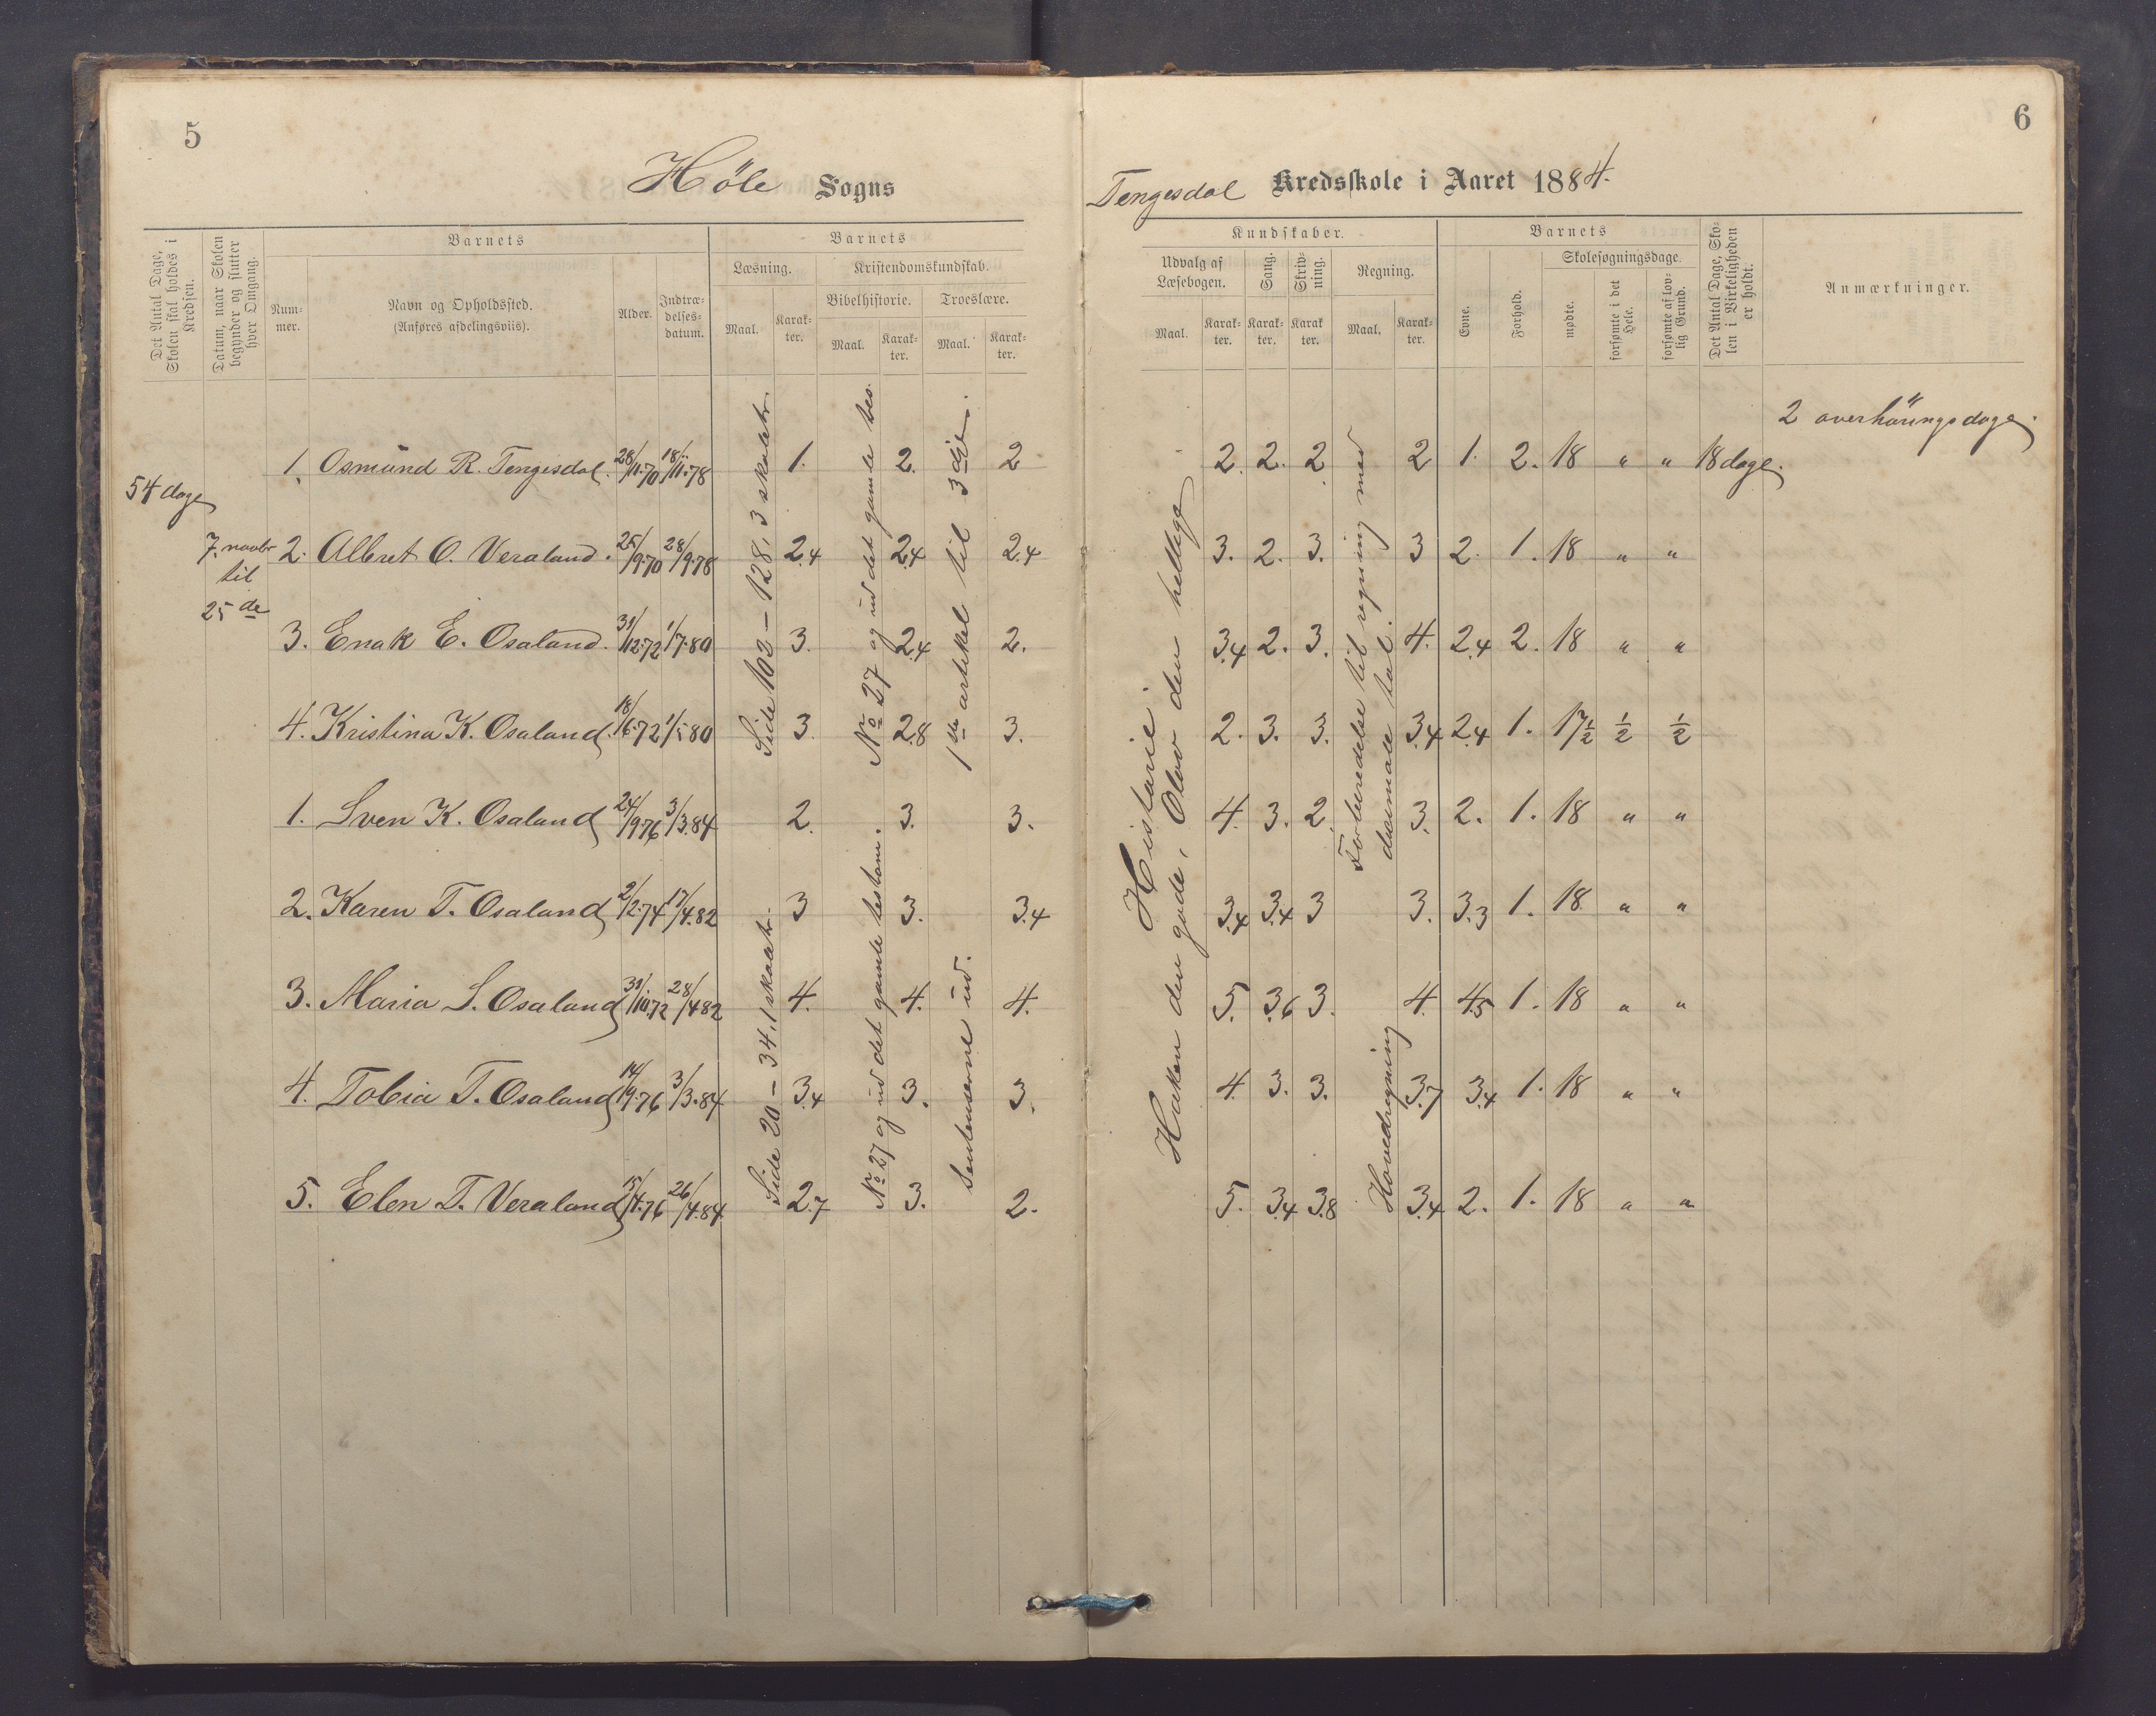 5
6
Höle Sogns
Tengesdal Kredsskole i Aaret 1884.
Det Antal Dage, Skolen skal holdes i Kredsen.
Datum, naar Skolen begynder og slutter hver Omgang.
Barnets
Num-mer.
Navn og Opholdssted.
(Anføres afdelingsviis).
Alder.
Indtræ-delses-datum.
Barnets
Læsning.
Maal.
Karak-ter.
Kristendomskundskab.
Bibelhistorie.
Maal.
Karak-ter.
Troeslære.
Maal.
Karak-ter.
Kundskaber.
Udvalg af Læsebogen.
Maal.
Karak-ter.
Sang.
Karak-ter.
Skriv-ning.
Karak ter.
Regning.
Maal.
Karak-ter.
Barnets
Evne.
Forhold.
Skolesøgningsdage.
mødte.
forsømte i det Hele.
forsømte af lov-lig Grund.
Det Antal Dage, Sko-len i Virkeligheden er holdt.
Anmærkninger.
2 overhöringsdage.
54 dage
7. novbr
til
25 de
1. Osmund R. Tengesdal. 28/11.70 18/11.78 1. 2. 2 2. 2. 2 2 1. 2. 18 " " 18 dage.
2. Albret O. Veraland. 25/9.70 28/9.78 2.4 2.4 2.4 3. 2. 3. 3 2. 1. 18 " "
3. Enak E. Osaland. 31/12.72 1/7.80 3. 2.4 2. 3.4 2. 3. 4. 2.4 2. 18 " "
4. Kristina K. Osaland. 18/6.72 1/5.80 3. 2.8 3. 2. 3. 3. 3.4 2.4 1. 17½ ½ ½
1. Sven K. Osaland 24/9.76 3/3.84 2. 3. 3. 4. 3. 2. 3. 2. 1. 18 " "
2. Karen T. Osaland 2/2.74 17/4.82 3 3. 3.4 3.4 3.4 3 3. 3.3 1. 18 " "
3. Maria S. Osaland 31/10.72 28/4.82 4. 4. 4. 5. 3.6 3. 4. 4.5 1. 18 " "
4. Tobia T. Osaland 14/9.76 3/3.84 3.4 3. 3. 4. 3. 3. 3.7 3.4 1. 18 " "
5. Elen T. Veraland 15/4.76 26/4.84 2.7 3. 2. 5. 3.4 3.8 3.4 2. 1. 18 " "
Side 103 – 128, 3 skoletr.
Side 20 – 34, 1 skoletr.
No 27 og ud det gamle tes.
No 27 og ud det gamle testam.
1ste artikel til 3die.
sentenserne ud.
Historie
Hakon den gode, Olav den hellige
Forberedelse til regning med
decimale tal.
Hovedregning